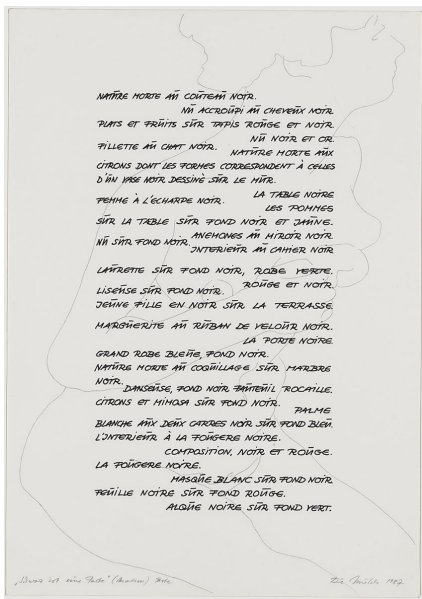 NATŪRE MORTE AŪ COŪTEAŪ NOIR.
NŪ ACCROŪPI AŪ CHEVEŪX NOIR
PLATS ET FRŪITS SŪR TAPIS ROŪGE ET NOIR.
NŪ NOIR ET OR.
FILLETTE AŪ CHAT NOIR.
NATŪRE MORTE AŪX
CITRONS DONT LES FORMES CORRESPONDENT À CELLES
D'ŪN VASE NOIR DESSINÈ SŪR LE MŪR.
LA TABLE NOIRE
FEMME À L'ECHARPE NOIR.
LES POMMES
SŪR LA TABLE SŪR FOND NOIR ET JAŪNE.
ANEMONES AŪ MIROIR NOIR
NŪ SŪR FOND NOIR.
INTERIEŪR AŪ CAHIER NOIR
LAŪRETTE SŪR FOND NOIR, ROBE VERTE.
ROŪGE ET NOIR.
LISEŪSE SŪR FOND NOIR.
JEŪNE FILLE EN NOIR SŪR LA TERRASSE.
MARGŪERITE AŪ RŪBAN DE VELOŪR NOIR.
LA PORTE NOIRE.
GRAND ROBE BLEŪE, FOND NOIR.
NATŪRE MORTE AŪ COQŪILLAGE SŪR MARBRE
NOIR.
DANSEŪSE, FOND NOIR FAŪTEŪIL ROCAILLE.
CITRONS ET MIMOSA SŪR FOND NOIR.
PALME
BLANCHE AŪX DEŪX CARRES NOIR SŪR FOND BLEŪ.
L'INTERIEŪR À LA FOŪGERE NOIRE.
COMPOSITION, NOIR ET ROŪGE.
LA FOŪGERE NOIRE.
MASQŪE BLANC SŪR FOND NOIR.
FEŪILLE NOIRE SŪR FOND ROŪGE.
ALQŪE NOIRE SŪR FOND VERT.
"Schwarz ist eine Farbe" (Matisse) 1987